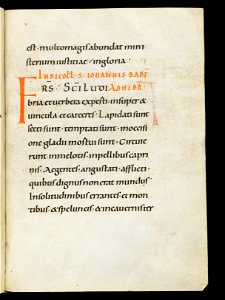 est · multo magis abundat mini
sterium iustitiae · in gloria ·
FIN DECOLL · S · IOHANNIS BAPT
RS · SCI LUDI AD HEBR
bria et verbera experti · insuper &
uincula et carceres · Lapidati sunt ·
secti sunt · temptati sunt · in occisi
one gladii mortui sunt · Circuie
runt in melotis · in pellibus capri
nis · Aegentes · angustati · afflicti ·
quibus dignus non erat mundus ·
In solitudinibus errantes · et mon
tibus · & speluncis · & in cauernis ter